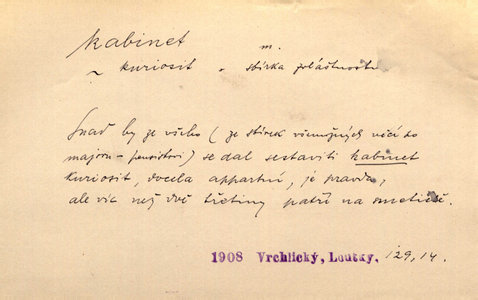 kabinet m.
~ kuriosit „ sbírka zvláštností
Snad by ze všeho (ze sbírek všemožných věcí po
majoru-pensistovi) se dal sestaviti kabinet
kuriosit, docela appartní, je pravda,
ale víc než dvě třetiny patří na smetiště.
1908 Vrchlický, Loutky. 129, 14.